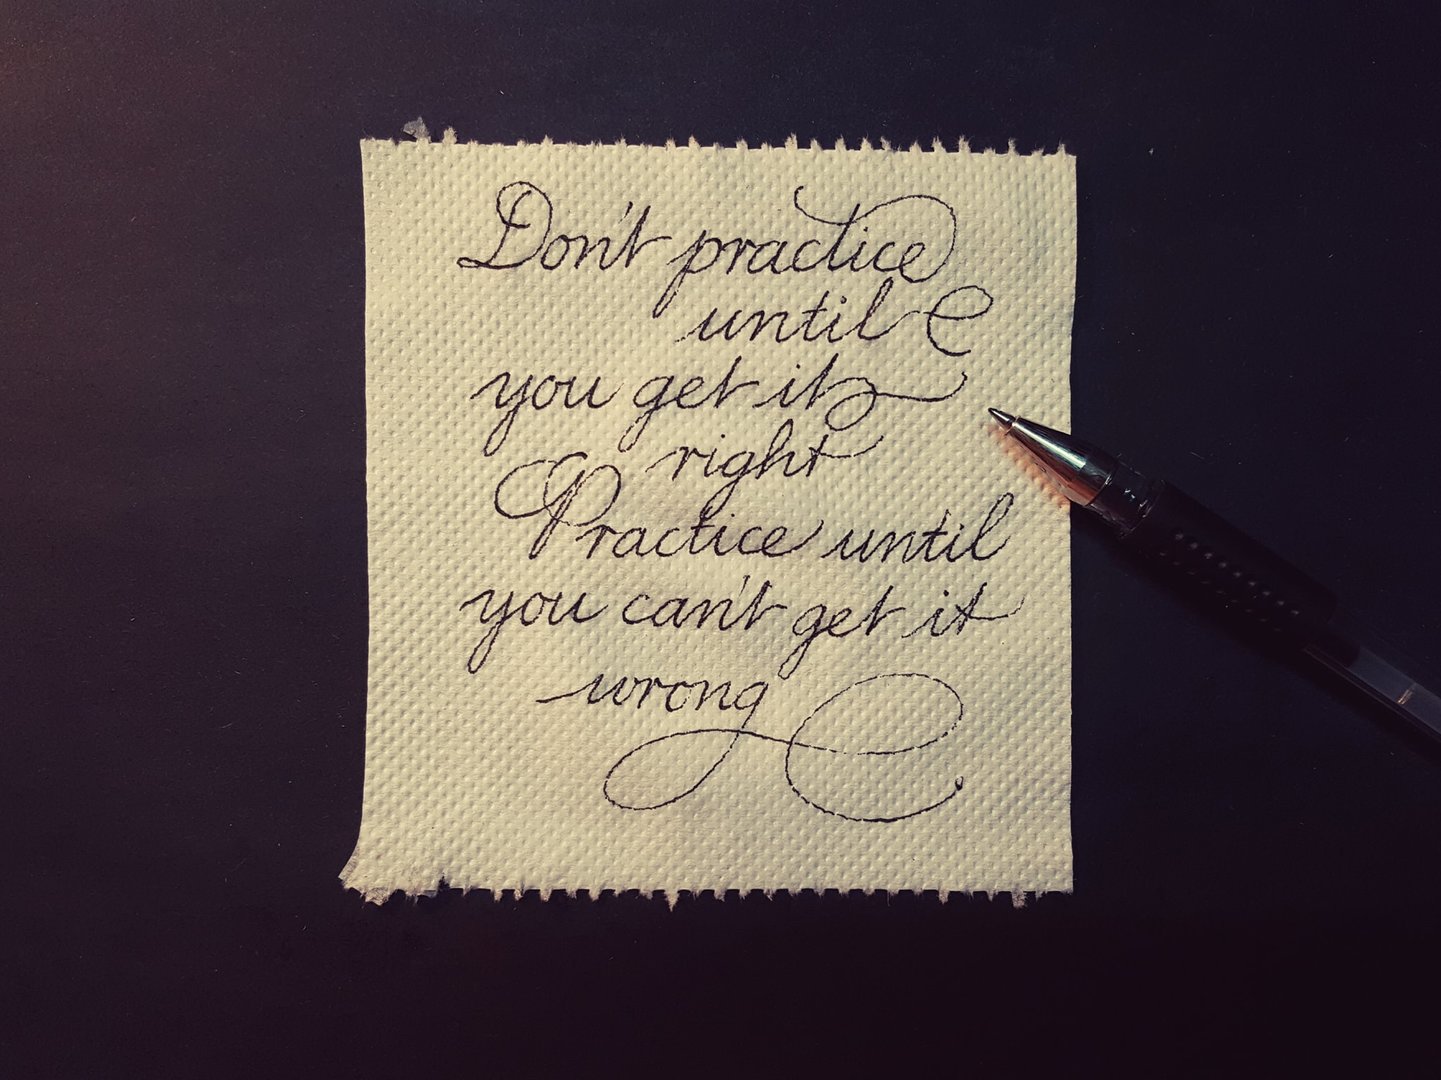 Don't practice
until
you get it
right
Practice until
you can't get it
wrong